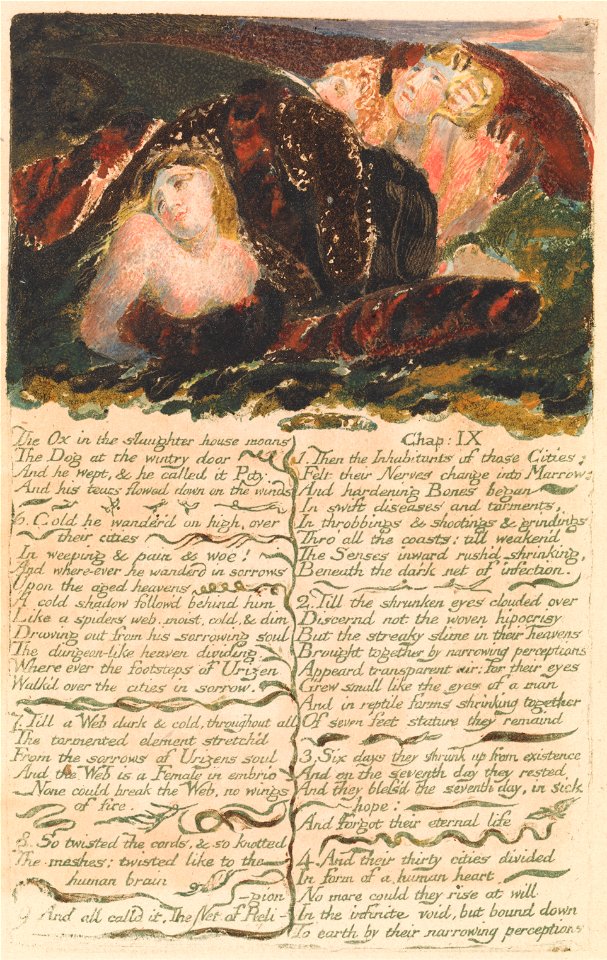 The Ox in the slaughter house moans
The Dog at the wintry door
And he wept, & he called it Pity
And his tears flowed down on the winds
6. Cold he wander'd on high, over
their cities
In weeping & pain & woe!
And where-ever he wanderd in sorrows
Upon the aged heavens
A cold shadow follow'd behind him
Like a spiders web, moist, cold, & dim
Drawing out from his sorrowing soul
The dungeon-like heaven dividing
Where ever the footsteps of Urizen
Walk'd over the cities in sorrow.
7. Till a Web dark & cold, throughout all
The tormented element stretch'd
From the sorrows of Urizens soul
And the Web is a Female in embrio
None could break the Web, no wings
of fire.
8. So twisted the cords, & so knotted
The meshes: twisted like to the
human brain
-gion
9. And all calld it, The Net of Reli-
Chap: IX
1. Then the Inhabitants of those Cities;
Felt their Nerves change into Marrow
And hardening Bones began
In swift diseases and torments,
In throbbings & shootings & grindings
Thro' all the coasts; till weakend
The Senses inward rush'd shrinking,
Beneath the dark net of infection.
2. Till the shrunken eyes clouded over
Discernd not the woven hipocrisy
But the streaky slime in their heavens
Brought together by narrowing perceptions
Appeard transparent air; for their eyes
Grew small like the eyes of a man
And in reptile forms shrinking together
Of seven feet stature they remaind
3. Six days they shrunk up from existence
And on the seventh day they rested
And they bless'd the seventh day, in sick
hope:
And forgot their eternal life
4. And their thirty cities divided
In form of a human heart
No more could they rise at will
In the infinite void, but bound down
To earth by their narrowing perceptions